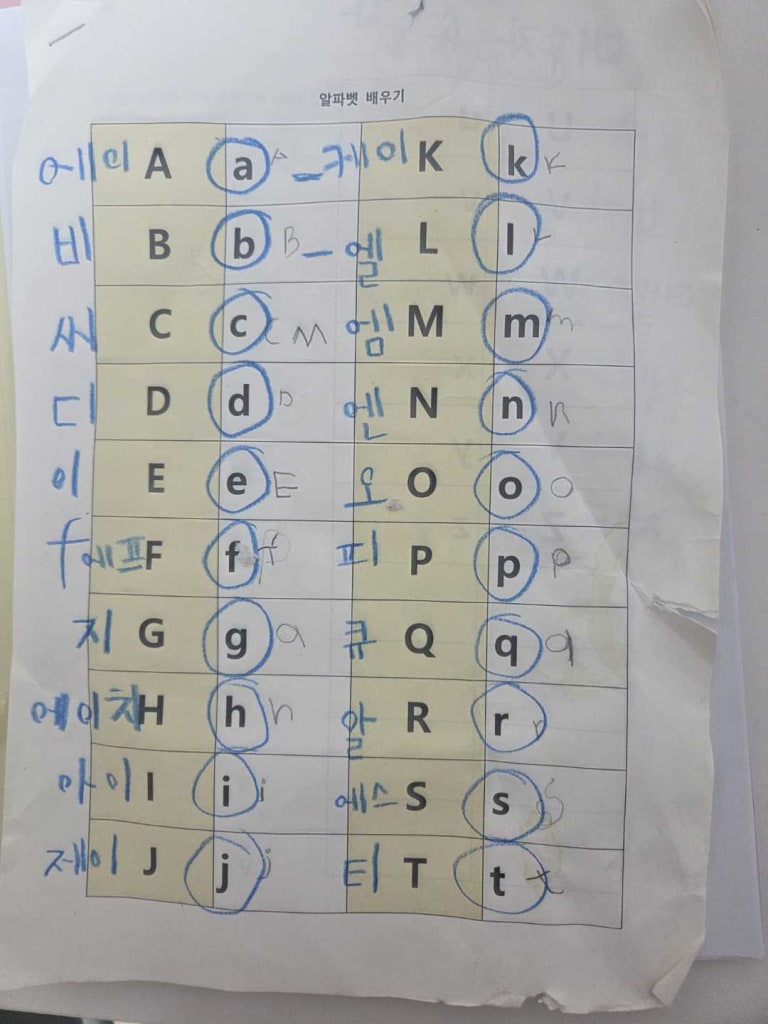 알파벳 배우기
에이 A a A - 케이 K k K
비 B b B - 엘 L l
씨 C c C M 엠 M m m
디 D d D 엔 N n n
이 E e E 오 O o o
f 에프 F f f 피 P p p
지 G g 큐 Q q q
에이치 H h h 알 R r r
아이 I i i 에스 S s S
제이 J j j 티 T t t